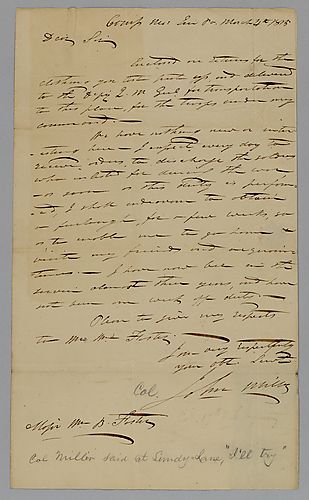 Camp near Erie Pa. March 4th 1815
Dear Sir
Enclosed are returns for the
clothing you have put up and delivered
to the Depy Q. M. Genl for transportation
to this place, for the troops under my
command.
We have nothing new or inter
esting here - I expect every day to
receive orders to discharge the soldiers
who enlisted for during the war,
as soon as this duty is perform
ed, I shall endeavour to obtain
a furlough, for a few weeks, so
as to enable me to go home &
visit my friends and acquain
tances. I have now been in the
service almost three years, and have
not been one week off duty.
Please to give my respects
to Mrs. Foster
I am very respectfully
your obt. Servt.
John Miller
Col.
Major Wm B. Foster
Col Miller said at Lundys Lane, "I'll try"